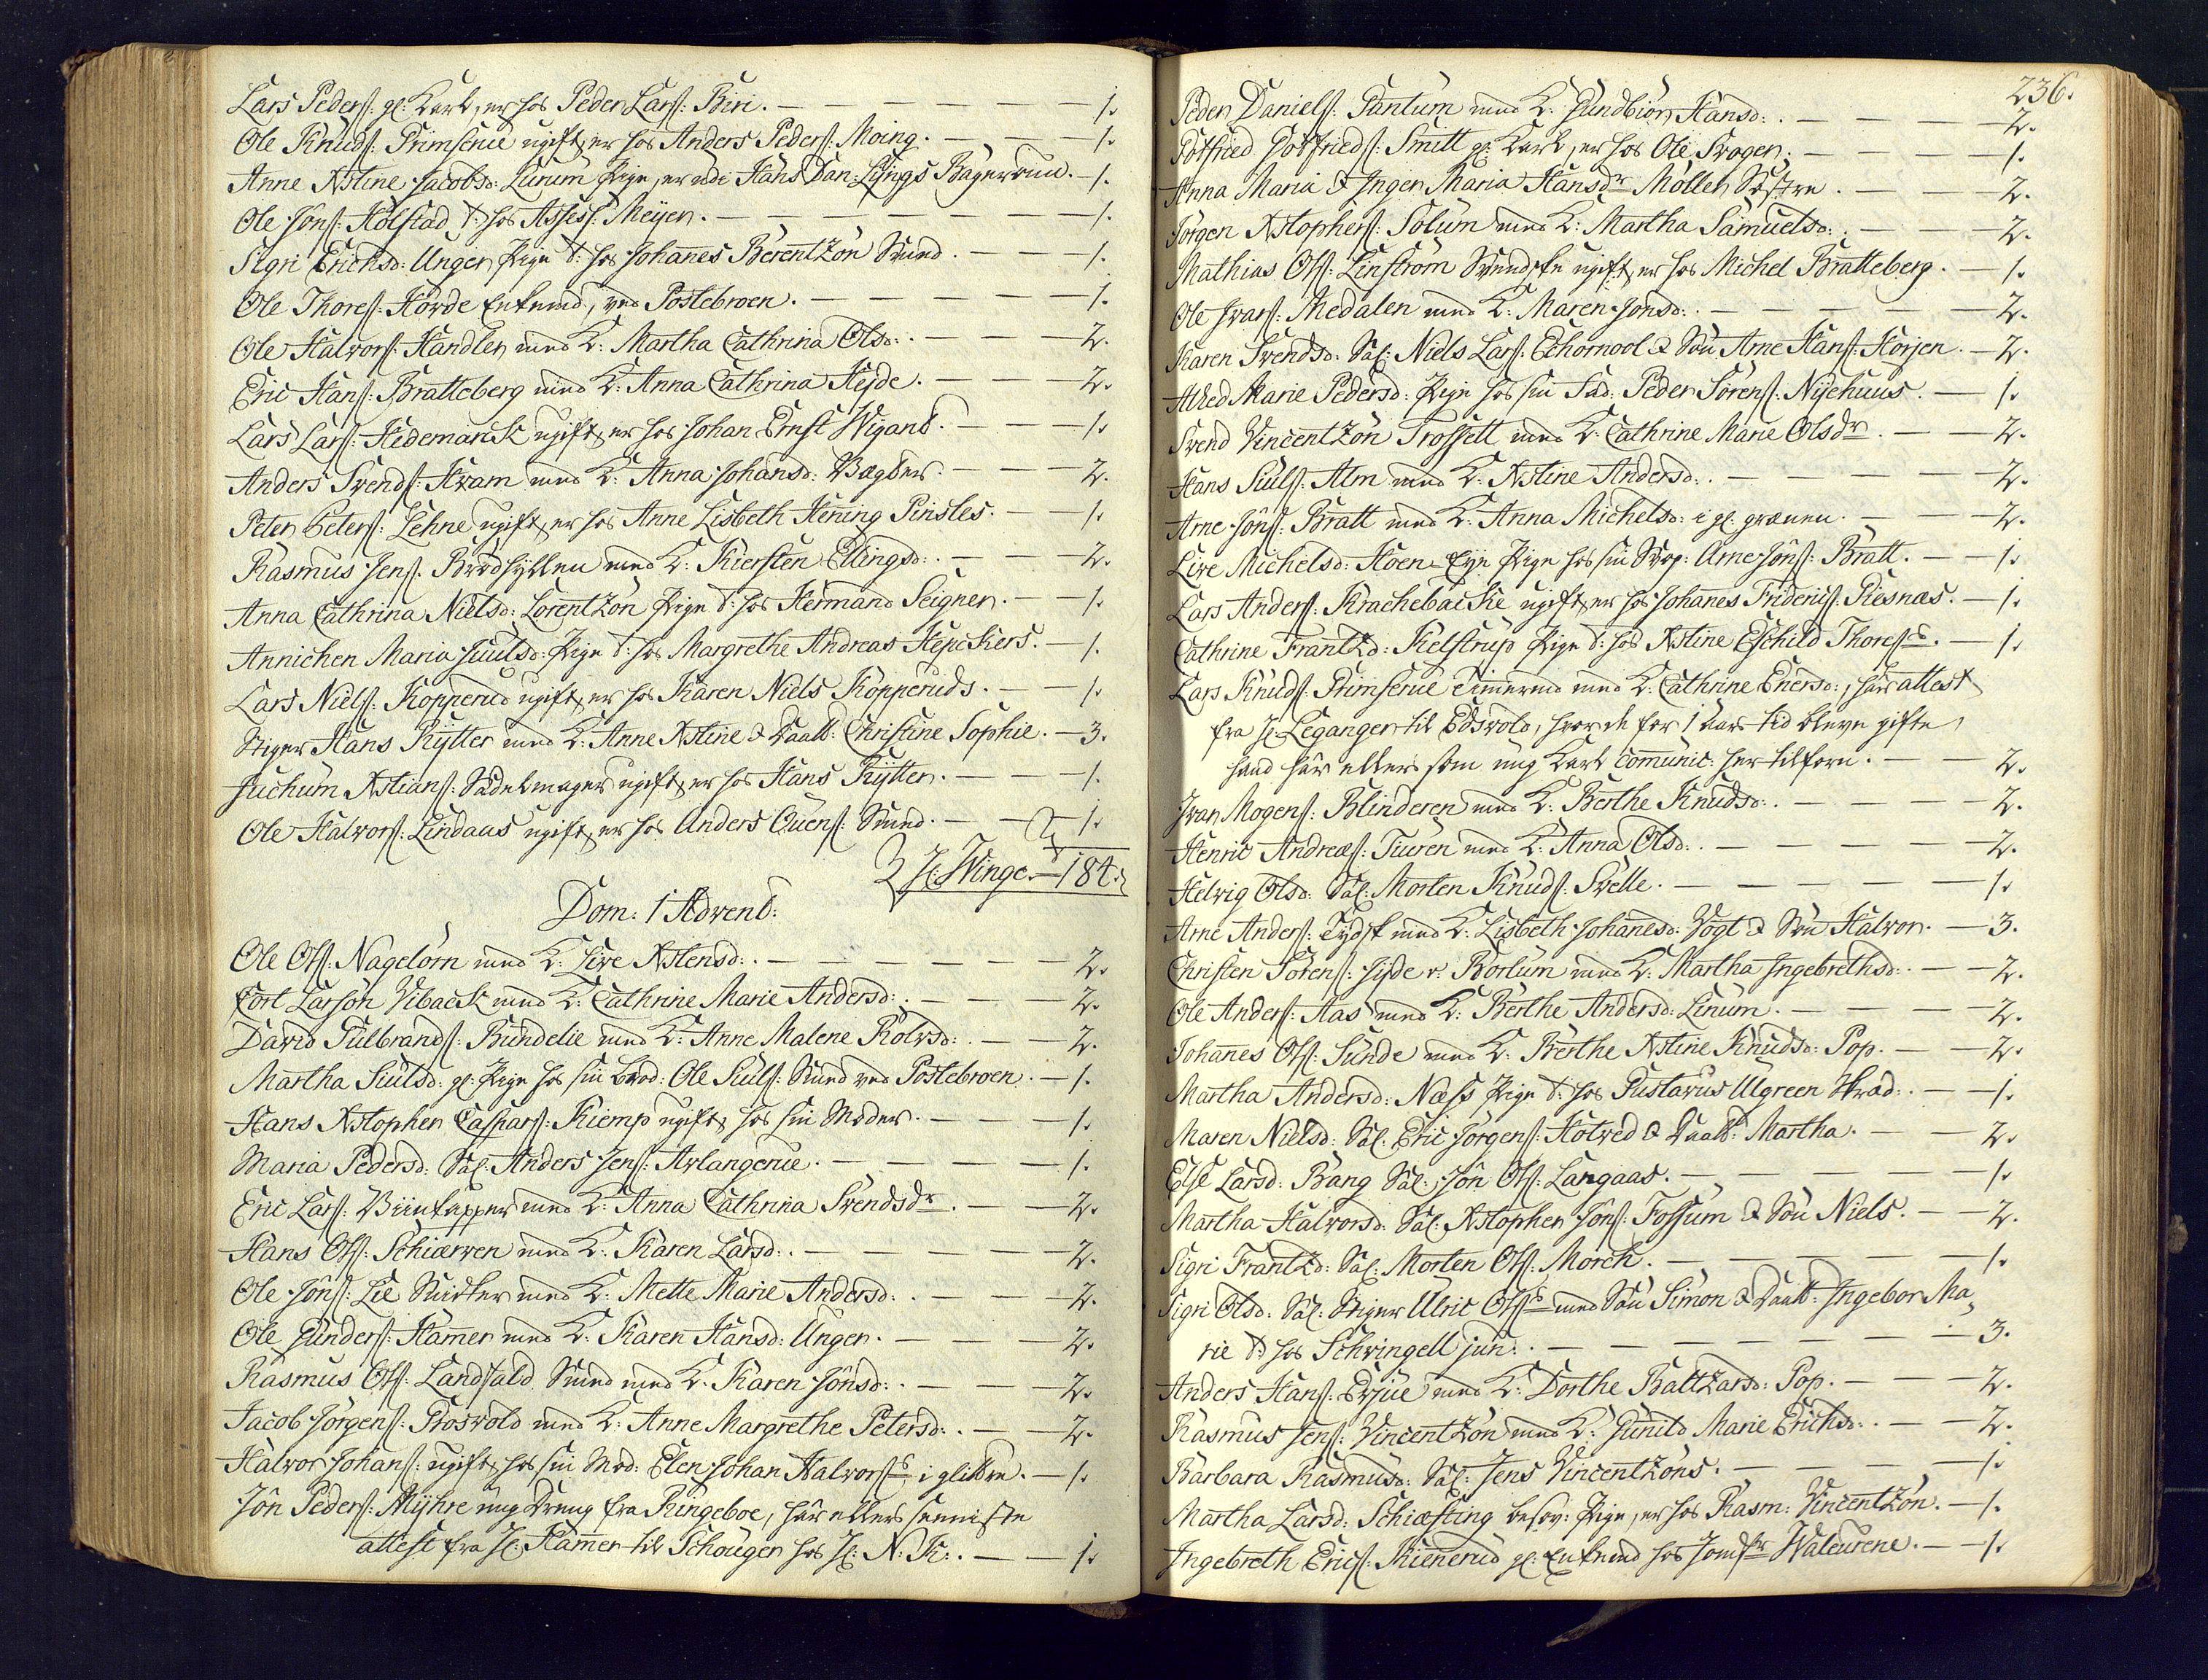 Lars Peders: gl: Karl, er hos Peder Lars: Biri. — 1.
Ole Knuds: Primserud ugift, er hos Anders Peders: Moing. — 1.
Anne Xstine Jacobsd: Lurum Pige, er udi Hans Dan: Lyngs Bagerrum. — 1.
Ole Jöns: Holstad t: hos Assess: Meyer. — 1.
Sigri Erichsd: Unger Pige t: hos Johanes Berentzön Smed. — 1.
Ole Thores: Horde Enkemd, ved Postebroen. — 1.
Ole Halvors: Handler med K: Martha Cathrina Olsd: — 2.
Eric Hans: Bratteberg med K: Anna Cathrina Hejde. — 2.
Lars Lars: Hedemarck ugift, er hos Johan Ernst Wigand. — 1.
Anders Svends: Hvam med K: Anna Johansd: Vægter. — 2.
Peter Peters: Lehne ugift, er hos Anne Lisbeth Hening Pinsles. — 1.
Rasmus Jens: Brödhylten med K: Kiersten Ellingsd: — 2.
Anna Cathrina Nielsd: Lorentzön Pige t: hos Hermand Seigner. — 1.
Annichen Maria Juulsd: Pige t: hos Margrethe Andreas Hepckers. — 1.
Lars Niels: Kopperud ugift, er hos Karen Niels Kopperuds. — 1.
Stiger Hans Rytter med K: Anne Xstine & Daatt: Christine Sophie. — 3.
Juchum Xstians: Sadelmager ugift, er hos Hans Rytter. — 1.
Ole Halvors: Lindaas ugift, er hos Anders Ouens: Smed. — 1.
H: Winge. — 184.
Dom: 1 Advent:
Ole Ols: Nagelörn med K: Live Xstensd: — 2.
Cort Larsön Vibæck med K: Cathrine Marie Andersd: — 2.
David Gulbrands: Bundelie med K: Anne Malene Rolvsd: — 2.
Martha Siulsd: gl: Pige hos sin Brod: Ole Siuls: Smed ved Postebroen. — 1.
Hans Xstopher Caspars: Kiemp ugift, hos sin Moder. — 1.
Maria Pedersd: Sal: Anders Jens: Arlangerue. — 1.
Eric Lars: Viintapper med K: Anna Cathrina Svendsdr. — 2.
Hans Ols: Schiærven med K: Karen Larsd: — 2.
Ole Jöns: Lie Snidker med K: Mette Marie Andersd: — 2.
Ole Gunders: Hamer med K: Karen Hansd: Unger. — 2.
Rasmus Ols: Landfald Smed med K: Karen Jönsd: — 2.
Jacob Jörgens: Grosvold med K: Anne Margrethe Petersd: — 2.
Halvor Johans: ugift, hos sin Mod: Elen Johan Halvors: i glittre. — 1.
Jön Peders: Myhre ung Dreng fra Ringeboe, har ellers seeniste
attest fra H: Hamer til Schouger hos H: N: K: — 1.
236.
Peder Daniels: Gantum med K: Gundbiör Hansd: — 2.
Gotfried Gotfrieds: Smitt gl: Karl, er hos Ole Skogen. — 1.
Anna Maria & Inger Maria Hansdr Möller Söstre. — 2.
Jörgen Xstophers: Solum med K: Martha Samuelsd: — 2.
Mathias Ols: Linström Svendsk ugift, er hos Michel Bratteberg. — 1.
Ole Ivars: Medalen med K: Maren Jonsd: — 2.
Karen Svendsd: Sal: Niels Lars: Echornool & Sön Arne Hans: Horjen. — 2.
Alhed Marie Pedersd: Pige hos sin Fad: Peder Sörens: Nyehuus. — 1.
Svend Vincentzön Trossett med K: Cathrine Marie Olsdr. — 2.
Hans Siuls: Alm med K: Xstine Andersd: — 2.
Arne Jöns: Bratt med K: Anna Michelsd: i gl: grænen. — 2.
Live Michelsd: Hoen-Eye Pige hos sin Svog: Arne Jöns: Bratt. — 1.
Lars Anders: Krachebække ugift, er hos Johanes Friderics: Riesnæs. — 1.
Cathrine Frantzd: Kielstrup Pige t: hos Xstine Eschild Thores: — 1.
Lars Knuds: Primserue Timermd med K: Cathrine Enersd:, har attest
fra H: Leganger til Edsvold, hvor de for 1 Aars tid bleve gifte,
hand har ellers som ung Karl comunic: her tilforn. — 2.
Ivar Mogens: Blinderen med K: Berthe Knudsd: — 2.
Henric Andreæs: Turen med K: Anna Olsd: — 2.
Helvig Olsd: Sal: Morten Knuds: Svelle. — 1.
Arne Anders: Tydsk med K: Lisbeth Johanesd: Vogt & Sön Halvor. — 3.
Christen Sörens: Jyde v: Borlum med K: Martha Ingebrethsd: — 2.
Ole Anders: Aas med K: Berthe Andersd: Linum. — 2.
Johanes Ols: Sunde med K: Berthe Xstine Knudsd: Pop. — 2.
Martha Andersd: Næss Pige t: hos Gustavus Ulgreen Strad: — 1.
Maren Nielsd: Sal: Eric Jörgens: Hotved & Daatt: Martha. — 2.
Else Larsd: Bang Sal: Jön Ols: Langaas. — 1.
Martha Halvorsd: Sal: Xstopher Jöns: Fossum & Sön Niels. — 2.
Sigri Frantzd: Sal: Morten Ols: Morch. — 1.
Sigri Olsd: Sal: Stiger Ulric Ols: med Sön Simon & Daatt: Ingebor Ma-
rie t: hos Schvingell jun: — 3.
Anders Hans: Erjue med K: Dorthe Baltzarsd: Pop. — 2.
Rasmus Jens: Vincentzön med K: Gunild Marie Erichsd: — 2.
Barbara Rasmusd: Sal: Jens Vincentzöns. — 1.
Martha Larsd: Schiæsting besov: Pige, er hos Rasm: Vincentzön. — 1.
Ingebreth Erics: Rienerud gl: Enkemd hos Jomfr Waleurene. — 1.